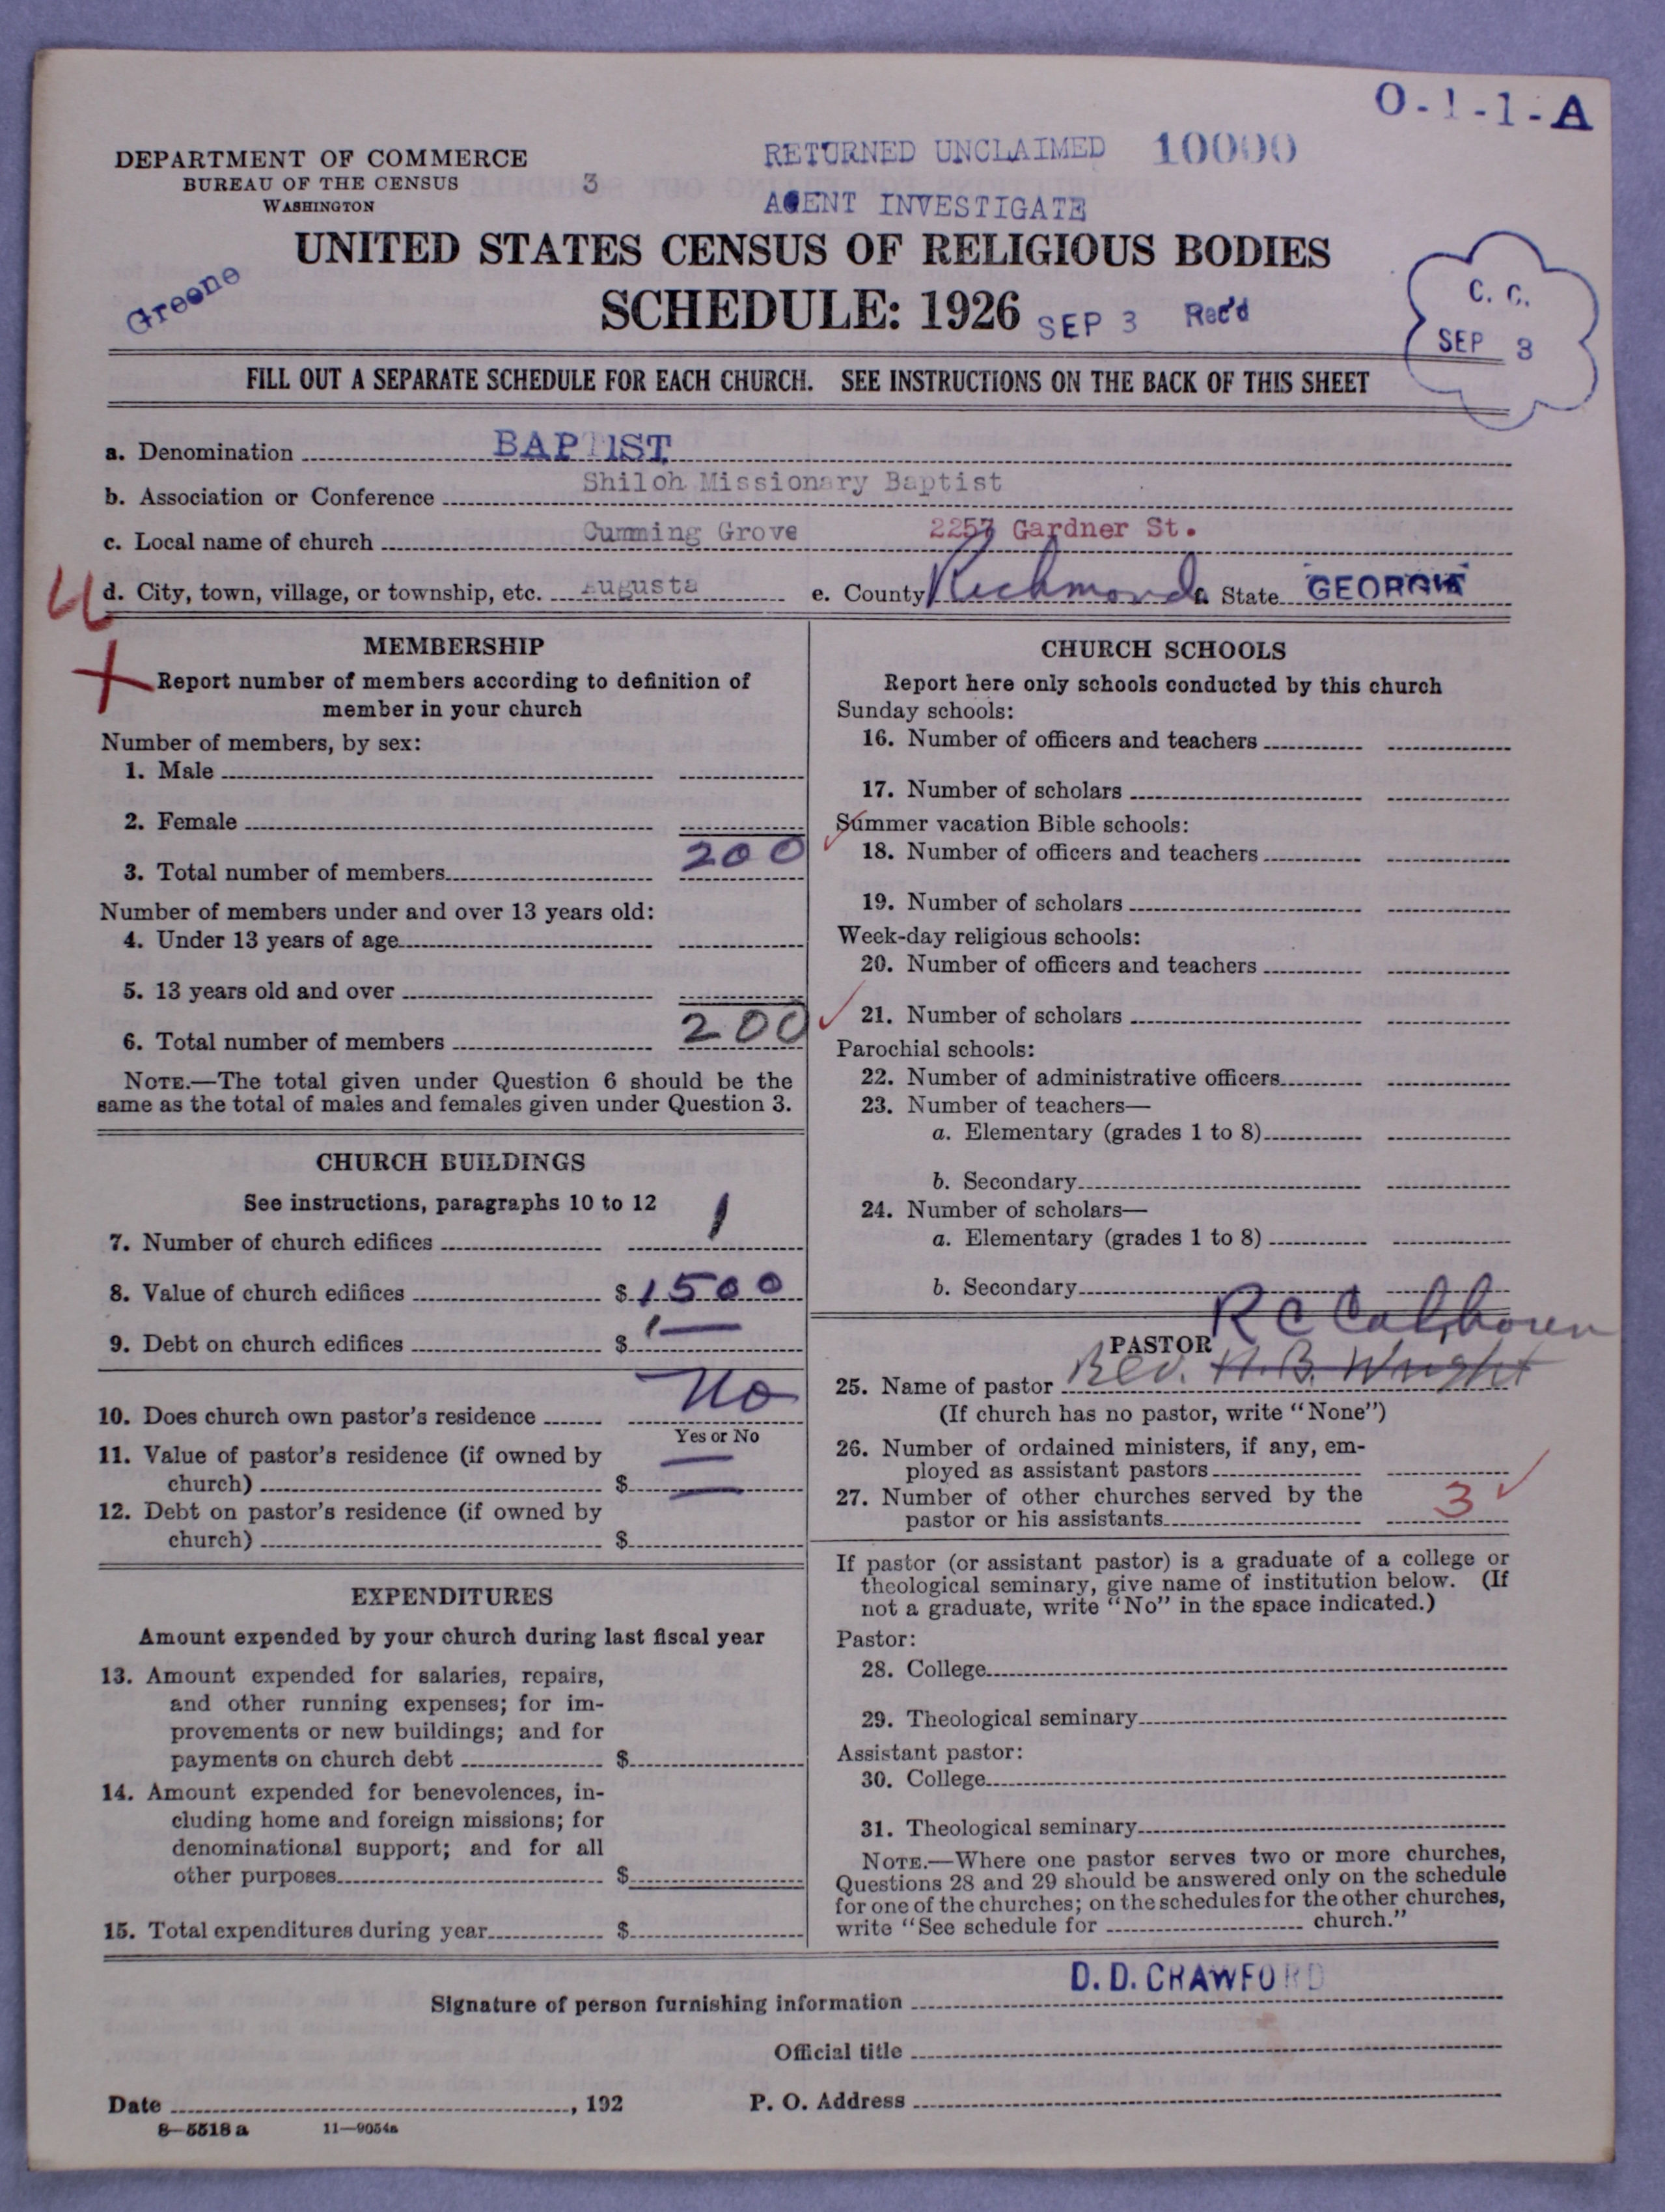 O-1-1-A
DEPARTMENT OF COMMERCE
BUREAU OF THE CENSUS
WASHINGTON
3
RETURNED UNCLAIMED 10000
AGENT INVESTIGATE
UNITED STATES CENSUS OF RELIGIOUS BODIES
Greene
SCHEDULE: 1926
SEP 3 Rec'd
C. C.
SEP 3
FILL OUT A SEPARATE SCHEDULE FOR EACH CHURCH. SEE INSTRUCTIONS ON THE BACK OF THIS SHEET
a. Denomination BAPTIST
b. Association or Conference Shiloh Missionary Baptist
c. Local name of church Cumming Grove 2257 Gardner St.
d. City, town, village, or township, etc. Augusta e. County Richmond f. State GEORGIA
MEMBERSHIP
Report number of members according to definition of
member in your church
Number of members, by sex:
1. Male
2. Female
3. Total number of members 200
Number of members under and over 13 years old:
4. Under 13 years of age
5. 13 years old and over
6. Total number of members 200
NOTE.—The total given under Question 6 should be the
same as the total of males and females given under Question 3.
CHURCH BUILDINGS
See instructions, paragraphs 10 to 12
7. Number of church edifices 1
8. Value of church edifices $ 1500
9. Debt on church edifices $ —
10. Does church own pastor's residence No
Yes or No
11. Value of pastor's residence (if owned by
church) $ —
12. Debt on pastor's residence (if owned by
church) $
EXPENDITURES
Amount expended by your church during last fiscal year
13. Amount expended for salaries, repairs,
and other running expenses; for im-
provements or new buildings; and for
payments on church debt $
14. Amount expended for benevolences, in-
cluding home and foreign missions; for
denominational support; and for all
other purposes $
15. Total expenditures during year $
CHURCH SCHOOLS
Report here only schools conducted by this church
Sunday schools:
16. Number of officers and teachers
17. Number of scholars
Summer vacation Bible schools:
18. Number of officers and teachers
19. Number of scholars
Week-day religious schools:
20. Number of officers and teachers
21. Number of scholars
Parochial schools:
22. Number of administrative officers
23. Number of teachers—
a. Elementary (grades 1 to 8)
b. Secondary
24. Number of scholars—
a. Elementary (grades 1 to 8)
b. Secondary
R C Calhoun
PASTOR
25. Name of pastor Rev. H. B. Wright
(If church has no pastor, write "None")
26. Number of ordained ministers, if any, em-
ployed as assistant pastors
27. Number of other churches served by the
pastor or his assistants 3
If pastor (or assistant pastor) is a graduate of a college or
theological seminary, give name of institution below. (If
not a graduate, write "No" in the space indicated.)
Pastor:
28. College
29. Theological seminary
Assistant pastor:
30. College
31. Theological seminary
NOTE.—Where one pastor serves two or more churches,
Questions 28 and 29 should be answered only on the schedule
for one of the churches; on the schedules for the other churches,
write "See schedule for church."
Signature of person furnishing information D. D. CRAWFORD
Official title
Date , 192 P. O. Address
8—5518 a 11—9054a